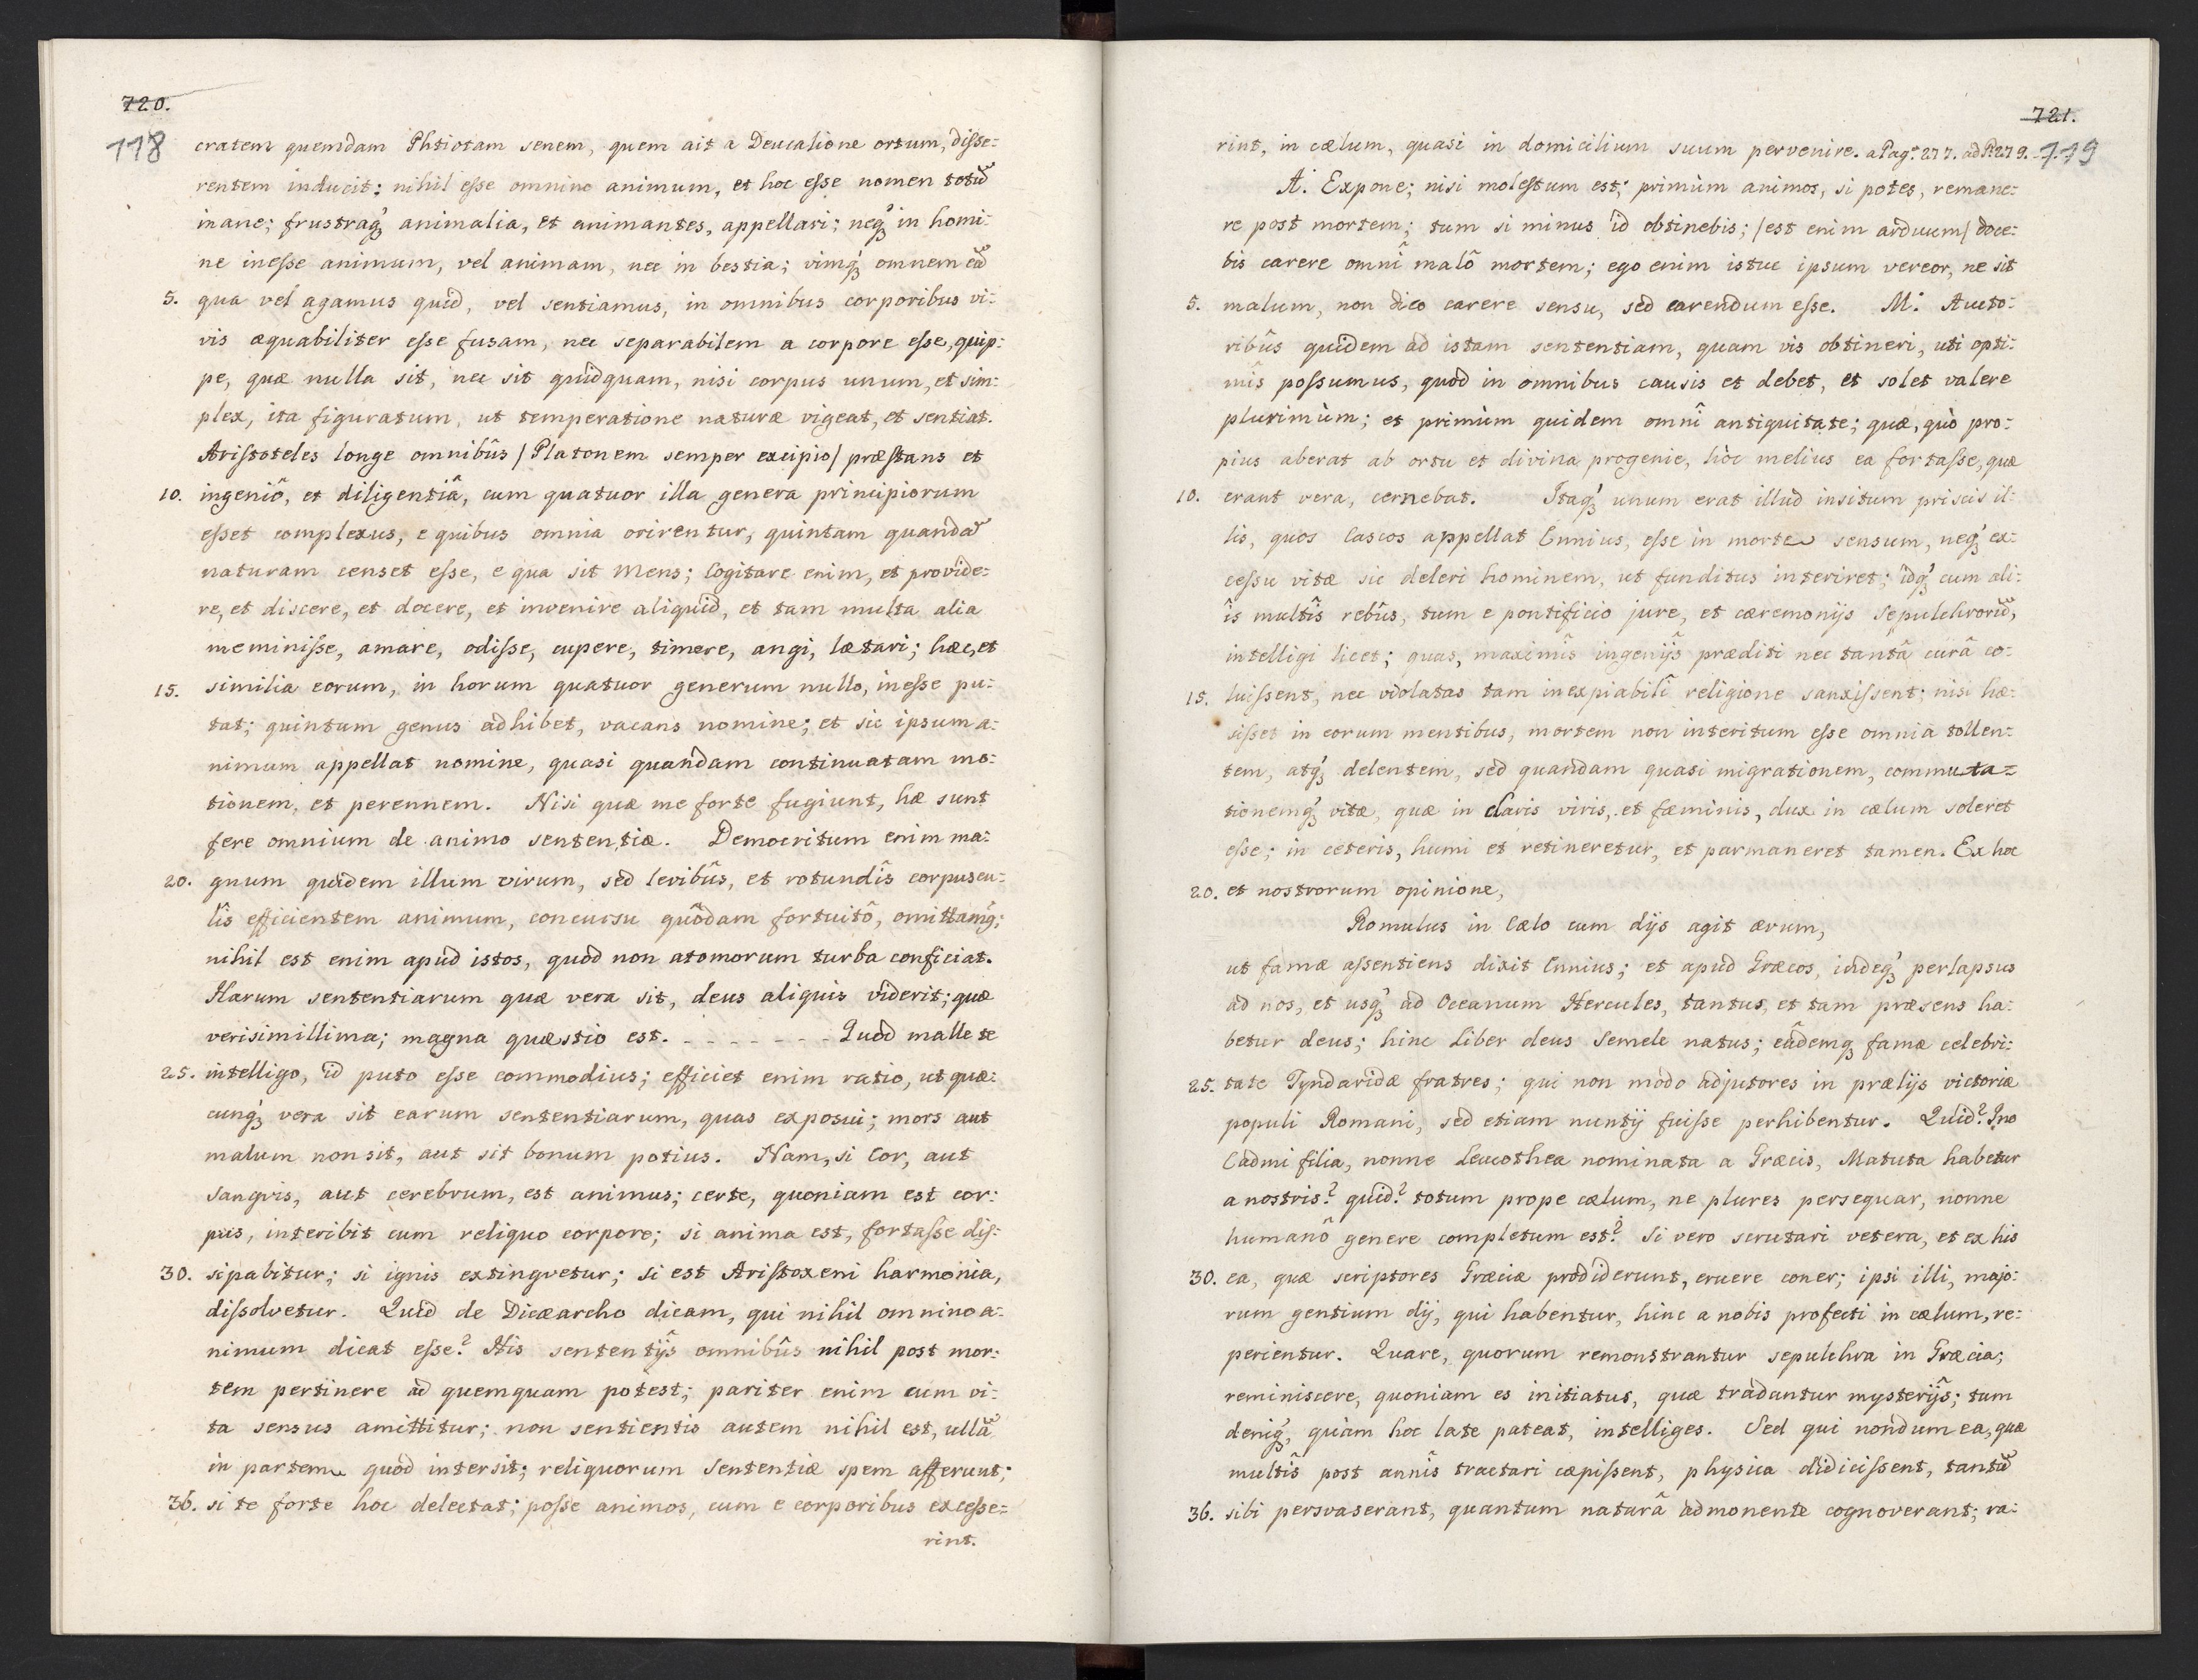 720.
118
cratem quemdam Phtiotam senem, quem ait a Deucalione ortum, disse:
rentem inducit: nihil esse omnino animum, et hoc esse nomen totu̅
inane; frustraq́ꝫ animalia, et animantes, appellari; neq́ꝫ in homi:
ne inesse animum, vel animam, nec in bestia; vimq́ꝫ omnem ea̅
5. qua vel agamus quid, vel sentiamus, in omnibus corporibus vi:
vis æquabiliter esse fusam, nec separabilem a corpore esse, quip:
pe, quæ nulla sit, nec sit quidquam, nisi corpus unum, et sim:
plex, ita figuratum, ut temperatione naturæ vigeat, et sentiat.
Aristoteles longe omnibûs /Platonem semper excipio/ præstans et
10. ingeniô, et diligentiâ, cum quatuor illa genera principiorum
esset complexus, e quibus omnia orirentur, quintam quanda̅
naturam censet esse, e qua sit Mens; Cogitare enim, et provide:
re, et discere, et docere, et invenire aliquid, et tam multa alia
meminisse, amare, odisse, cupere, timere, angi, lætari; hæc, et
15. similia eorum, in horum quatuor generum nullo, inesse pu:
tat; quintum genus adhibet, vacans nomine; et sic ipsum a:
nimum appellat nomine, quasi quandam continuatam mo:
tionem, et perennem. Nisi quæ me forte fugiunt, hæ sunt
fere omnium de animo sententiæ. Democritum enim ma:
20. gnum quidem illum virum, sed levibûs, et rotundîs corpuscu:
lîs efficientem animum, concursu quôdam fortuitô, omittamq́;
nihil est enim apud istos, quod non atomorum turba conficiat.
Harum sententiarum quæ vera sit, deus aliquis viderit; quæ
verisimillima; magna quæstio est. - - - - - - - Quod malle te
25. intelligo, id puto esse commodius; efficiet enim ratio, ut quæ:
cunq́ꝫ vera sit earum sententiarum, quas exposui; mors aut
malum non sit, aut sit bonum potius. Nam, si Cor, aut
sangvis, aut cerebrum, est animus; certe, quoniam est cor:
pus, interibit cum reliquo corpore; si anima est, fortasse dis:
30. sipabitur; si ignis extingvetur; si est Aristoxeni harmonia,
dissolvetur. Quid de Dicæarcho dicam, qui nihil omnino a:
nimum dicat esse? His sententijs̑ omnibûs nihil post mor:
tem pertinere ad quemquam potest; pariter enim cum vi:
ta sensus amittitur; non sentientis autem nihil est, ulla̅
in partem quod intersit; reliquorum Sententiæ spem afferunt;
36. si te forte hoc delectat; posse animos, cum e corporibus excesse=
rint.
721.
119
rint, in cælum, quasi in domicilium suum pervenire. a Pag. 277. ad P. 279.
A. Expone; nisi molestum est; primùm animos, si potes, remane:
re post mortem; tum si minus id obtinebis; /est enim arduum/ doce:
bis carere omnî malô mortem; ego enim istuc ipsum vereor, ne sit
5. malum, non dico carere sensu, sed carendum esse. M. Aucto:
ribûs quidem ad istam sententiam, quam vis obtineri, uti opti:
mîs possumus, quod in omnibus causis et debet, et solet valere
plurimùm; et primùm quidem omnî antiquitate; quæ, quò pro:
pius aberat ab ortu et divina progenie, hòc melius ea fortasse, quæ
10. erant vera, cernebat. Itaq́ꝫ unum erat illud insitum priscis il:
lis, quos Cascos appellat Ennius, esse in morte sensum, neq́ꝫ ex:
cessu vitæ sic deleri hominem, ut funditus interiret; idq́ꝫ cum ali:
îs multîs rebûs, tum e pontificio jure, et cæremonijs Sepulchroru̅,
intelligi licet; quas, maximîs ingenijs̑ præditi nec tantâ curâ co:
15. luissent, nec violatas tam inexpiabilî religione sanxissent; nisi hæ:
sisset in eorum mentibus, mortem non interitum esse omnia tollen:
tem, atq́ꝫ delentem, sed quandam quasi migrationem, commuta=
tionemq́ꝫ vitæ, quæ in claris viris, et fæminis, dux in cælum soleret
esse; in ceteris, humi et retineretur, et parmaneret tamen. Ex hoc
20. et nostrorum opinione,
Romulus in Cælo cum dijs agit ærum,
ut famæ assentiens dixit Ennius; et apud Græcos, indeq́ꝫ perlapsus
ad nos, et usq́ꝫ ad Oceanum Hercules, tantus, et tam præsens ha:
betur deus; hinc Liber deus Semele natus; eâdemqꝫ famæ celebri:
25. tate Tyndaridæ fratres; qui non modo adjutores in prælijs victoriæ
populi Romani, sed etiam nuntij fuisse perhibentur. Quid? Ino
Cadmi filia, nonne Leucothea nominata a Græcis, Matuta habetur
a nostris? quid? totum prope cælum, ne plures persequar, nonne
humanô genere completum est? Si vero scrutari vetera, et ex his
30. ea, quæ scriptores Græciæ prodiderunt, eruere coner; ipsi illi, majo:
rum gentium dij, qui habentur, hinc a nobis profecti in cælum, re:
perientur. Quare, quorum remonstrantur sepulchra in Græcia;
reminiscere, quoniam es initiatus, quæ tradantur mysterijs̑; tum
deniq́ꝫ, quàm hoc late pateat, intelliges. Sed qui nondum ea, quæ
multîs post annîs tractari cæpissent, physica didicissent, tantu̅
36. sibi persvaserant, quantum naturâ admonente cognoverant; ra: